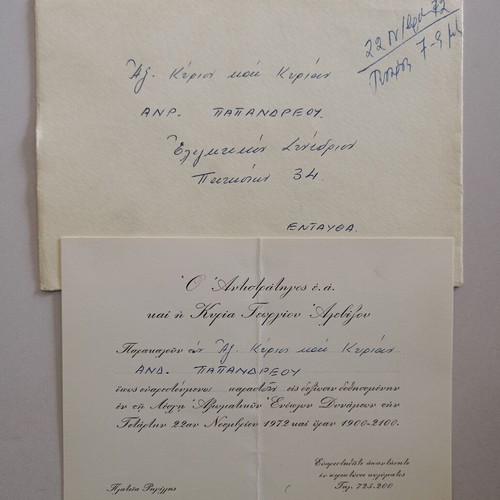 22 Ν/βρίου 72
7-9 μμ
Ἀξ. Κύριον καὶ Κυρίαν
ΑΝΡ. ΠΑΠΑΝΔΡΕΟΥ.
Ἐλεγκτικὸν Συνέδριον
Πατησίων 34
ΕΝΤΑΥΘΑ.
Ὁ Ἀντιστράτηγος ἐ.ἀ.
καὶ ἡ Κυρία Γεωργίου
Παρακαλοῦν τὸν Ἀξ. Κύριον καὶ Κυρίαν
ΑΝΔ. ΠΑΠΑΝΔΡΕΟΥ
ὅπως εὐαρεστούμενοι παραστῶσιν εἰς δεξίωσιν δοθησομένην
ἐν τῇ Λέσχῃ Ἀξιωματικῶν Ἐνόπλων Δυνάμεων τὴν
Τετάρτην 22αν Νοεμβρίου 1972 καὶ ὥραν 1900-2100.
Εὐαρεστηθῆτε ἀπαντήσητε
ἐν περιπτώσει κωλύματος
Πλατεῖα Ρηγίλλης
Τηλ. 725.200